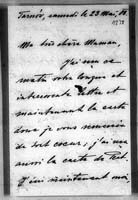 Tarnów, samedi le 23 Mai, 18
Ma très chère Maman,
J'ai reçu ce
matin votre longue et
intéressante lettre et
maintenant la carte
dont je vous remercie
de tout coeur; j'ai reçu
aussi la carte de
maintenant moi